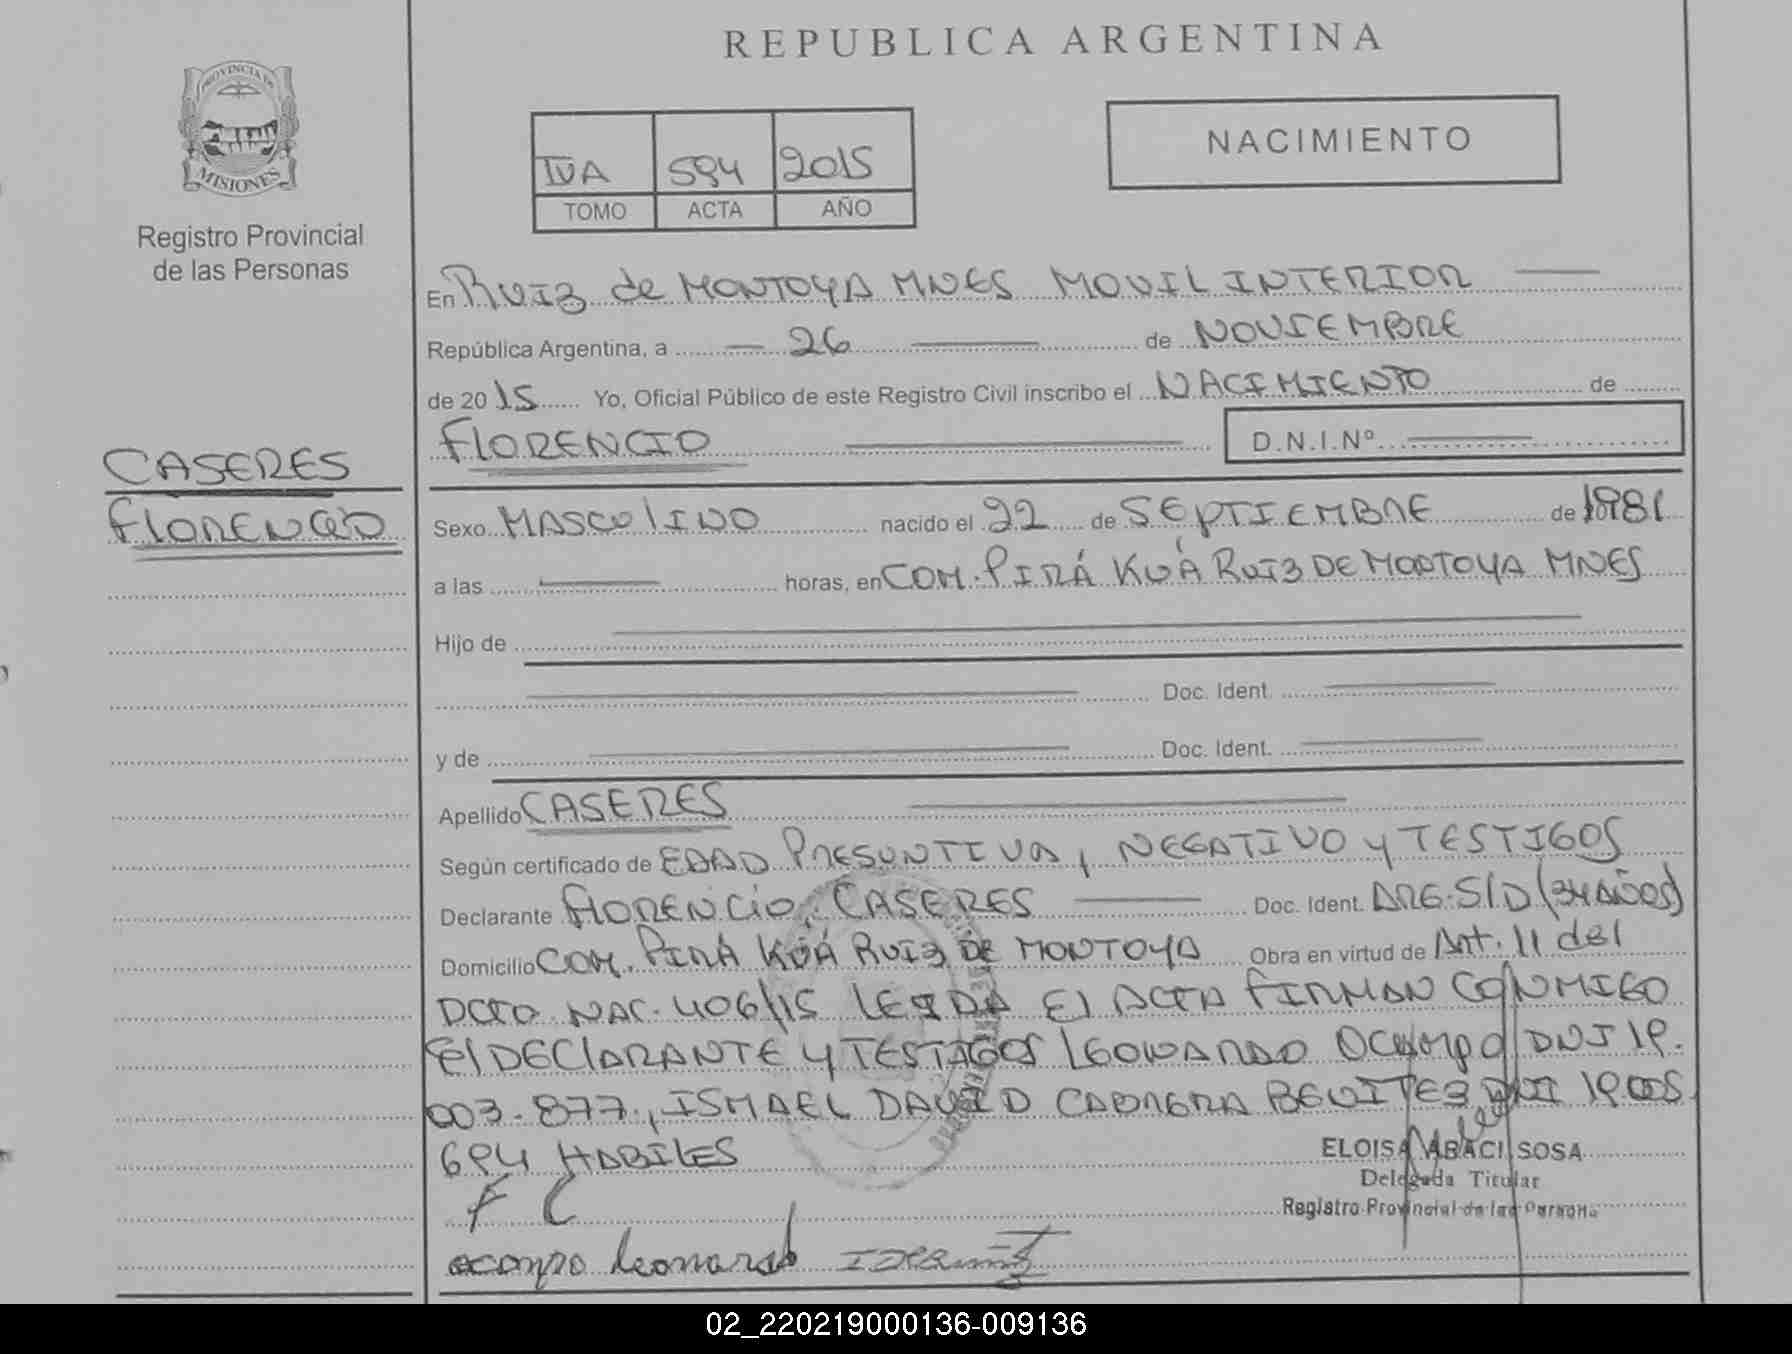 REPUBLICA ARGENTINA
PROVINCIA DE
MISIONES
Registro Provincial
de las Personas
IVA 594 2015
TOMO ACTA AÑO
NACIMIENTO
En RUIZ de MONTOYA MNES MOVIL INTERIOR
República Argentina, a 26 de NOVIEMBRE
de 2015 Yo, Oficial Público de este Registro Civil inscribo el NACIMIENTO de
FLORENCIO D.N.I.Nº
CASERES
FLORENCIO
Sexo MASCULINO nacido el 22 de SEPTIEMBRE de 1981
a las horas, en COM. PIRÁ KUÁ RUIZ DE MONTOYA MNES
Hijo de
Doc. Ident.
y de Doc. Ident.
Apellido CASERES
Según certificado de EDAD PRESUNTIVA, NEGATIVO y TESTIGOS
Declarante FLORENCIO, CASERES Doc. Ident. ARG. S/D (34 AÑOS)
Domicilio COM. PIRÁ KUÁ RUIZ DE MONTOYA Obra en virtud de Art. 11 del
DCTO. NAC. 406/15 LEIDA El ACTA FIRMAN CONMIGO
El DECLARANTE y TESTIGOS LEONARDO OCAMPO DNI 19.
003.877, ISMAEL DAVID CABRERA BENITEZ DNI 19.005
694 HABILES
ELOISA ABACI SOSA
Delegada Titular
Registro Provincial de las Personas
F C
ocampo leonardo
02_220219000136-009136